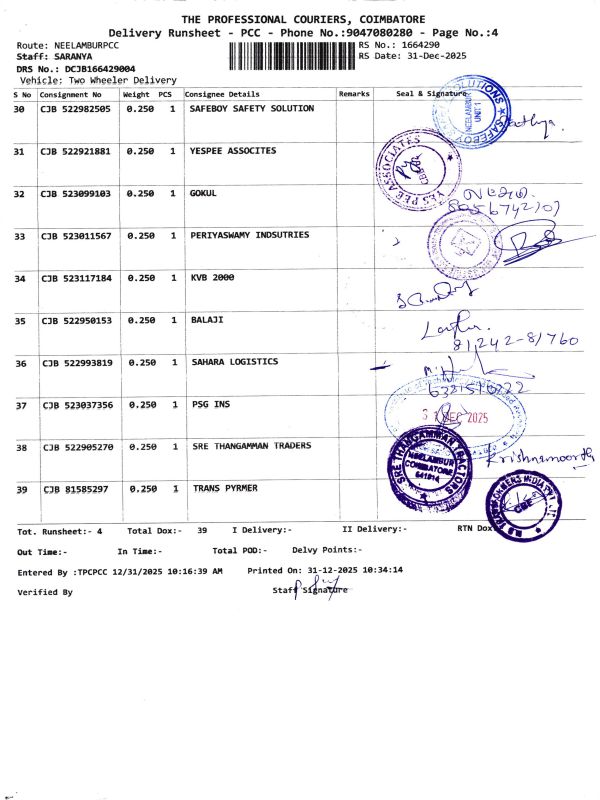 THE PROFESSIONAL COURIERS, COIMBATORE
Delivery Runsheet - PCC - Phone No.:9047080280 - Page No.:4
Route: NEELAMBURPCC
RS No.: 1664290
Staff: SARANYA
RS Date: 31-Dec-2025
DRS No.: DCJB166429004
Vehicle: Two Wheeler Delivery
S No Consignment No Weight PCS Consignee Details Remarks Seal & Signature
30 CJB 522982505 0.250 1 SAFEBOY SAFETY SOLUTION
NEELAMBUR UNIT 1
31 CJB 522921881 0.250 1 YESPEE ASSOCITES
YES PEE ASSOCIATES
32 CJB 523099103 0.250 1 GOKUL
33 CJB 523011567 0.250 1 PERIYASWAMY INDSUTRIES
34 CJB 523117184 0.250 1 KVB 2000
35 CJB 522950153 0.250 1 BALAJI
81,242-81760
36 CJB 522993819 0.250 1 SAHARA LOGISTICS
37 CJB 523037356 0.250 1 PSG INS
31 DEC 2025
38 CJB 522905270 0.250 1 SRE THANGAMMAN TRADERS
SRE THANGAMMAN TRACTORS
NEELAMBUR
COIMBATORE
Krishnamoorth
39 CJB 81585297 0.250 1 TRANS PYRMER
CBE
Tot. Runsheet:- 4 Total Dox:- 39 I Delivery:- II Delivery:- RTN Dox
Out Time:- In Time:- Total POD:- Delvy Points:-
Entered By :TPCPCC 12/31/2025 10:16:39 AM Printed On: 31-12-2025 10:34:14
Verified By Staff Signature